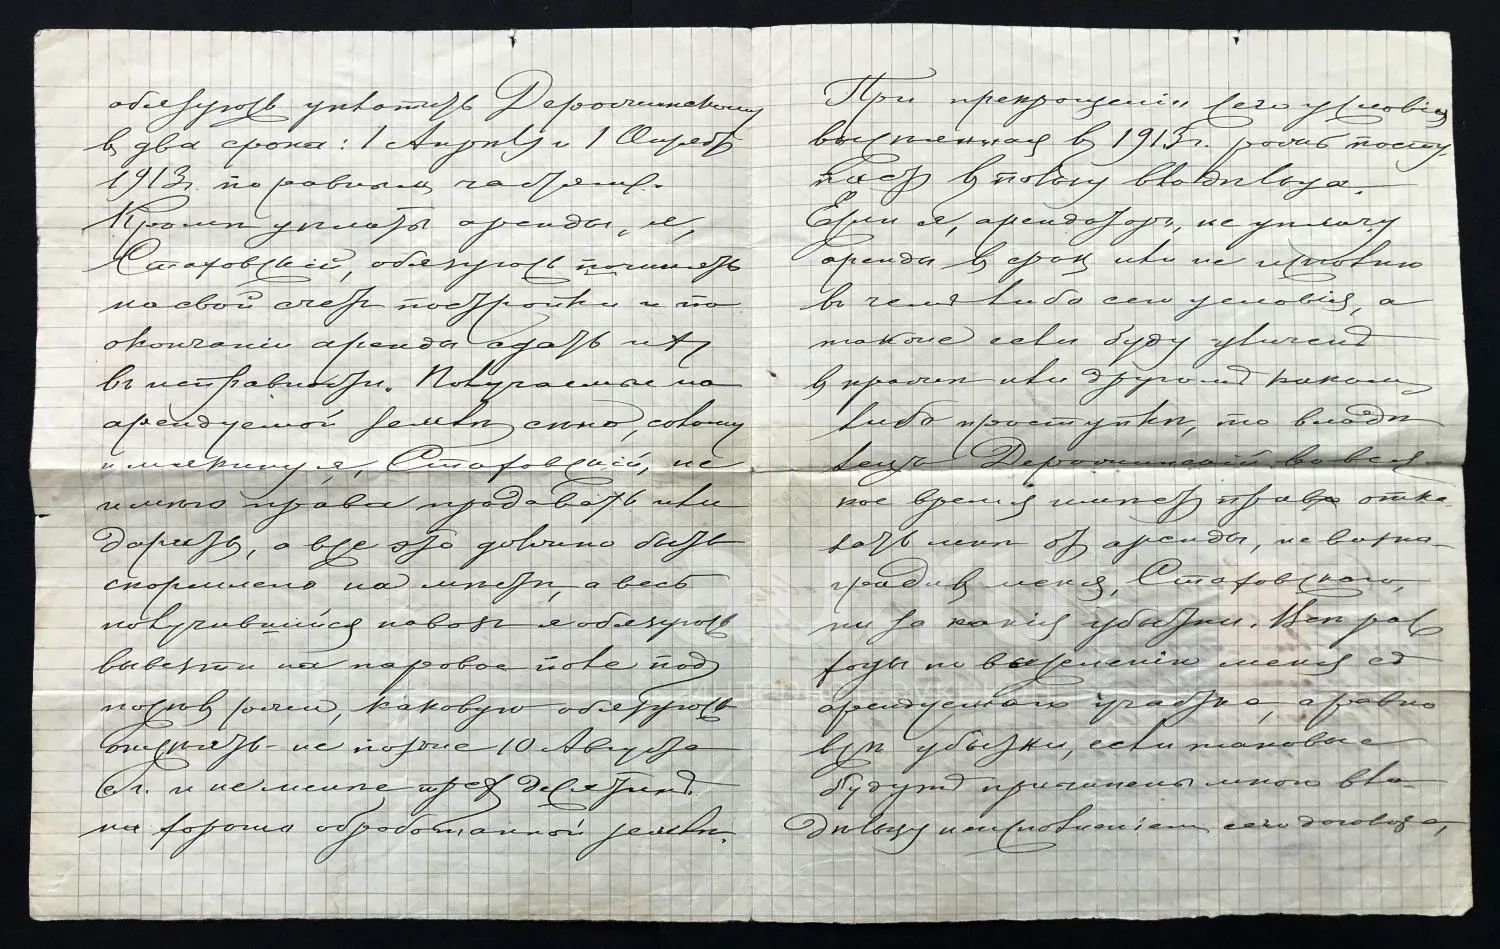 обязуюсь уплатить Дерочинскому
въ два срока: 1 Апрѣля и 1 Октября
1913 г. по равнымъ частямъ.
Кромѣ уплаты аренды, я,
Стаховскій, обязуюсь починять
на свой счетъ постройки и по
окончаніи аренды сдать ихъ
въ исправности. Получаемые на
арендуемой землѣ сѣно, солому
и мякину я, Стаховскій, не
имѣю права продавать или
дарить, а все это должно быть
скормлено на мѣстѣ, а весь
получившійся навозъ я обязуюсь
вывезти на паровое поле подъ
посѣвъ ржи, каковую обязуюсь
посѣять не позже 10 Августа
с/г. и не менѣе трехъ десятинъ
на хорошо обработанной землѣ.
При прекращеніи сего условія
высѣянная въ 1913 г. рожь посту-
паетъ въ пользу владѣльца.
Если я, арендаторъ, не уплачу
аренды въ срокъ или не исполню
въ чемъ либо сего условія, а
также если буду уличенъ
въ кражѣ или другомъ какомъ
либо проступкѣ, то владѣ-
лецъ Дерочинскій во вся-
кое время имѣетъ право отка-
зать мнѣ отъ аренды, не возна-
градивъ меня, Стаховскаго,
ни за какія убытки. Всѣ рас
ходы по выселенію меня съ
арендуемаго участка, а равно
всѣ убытки, если таковые
будутъ причинены мною вла-
дѣльцу неисполненіемъ сего договора,